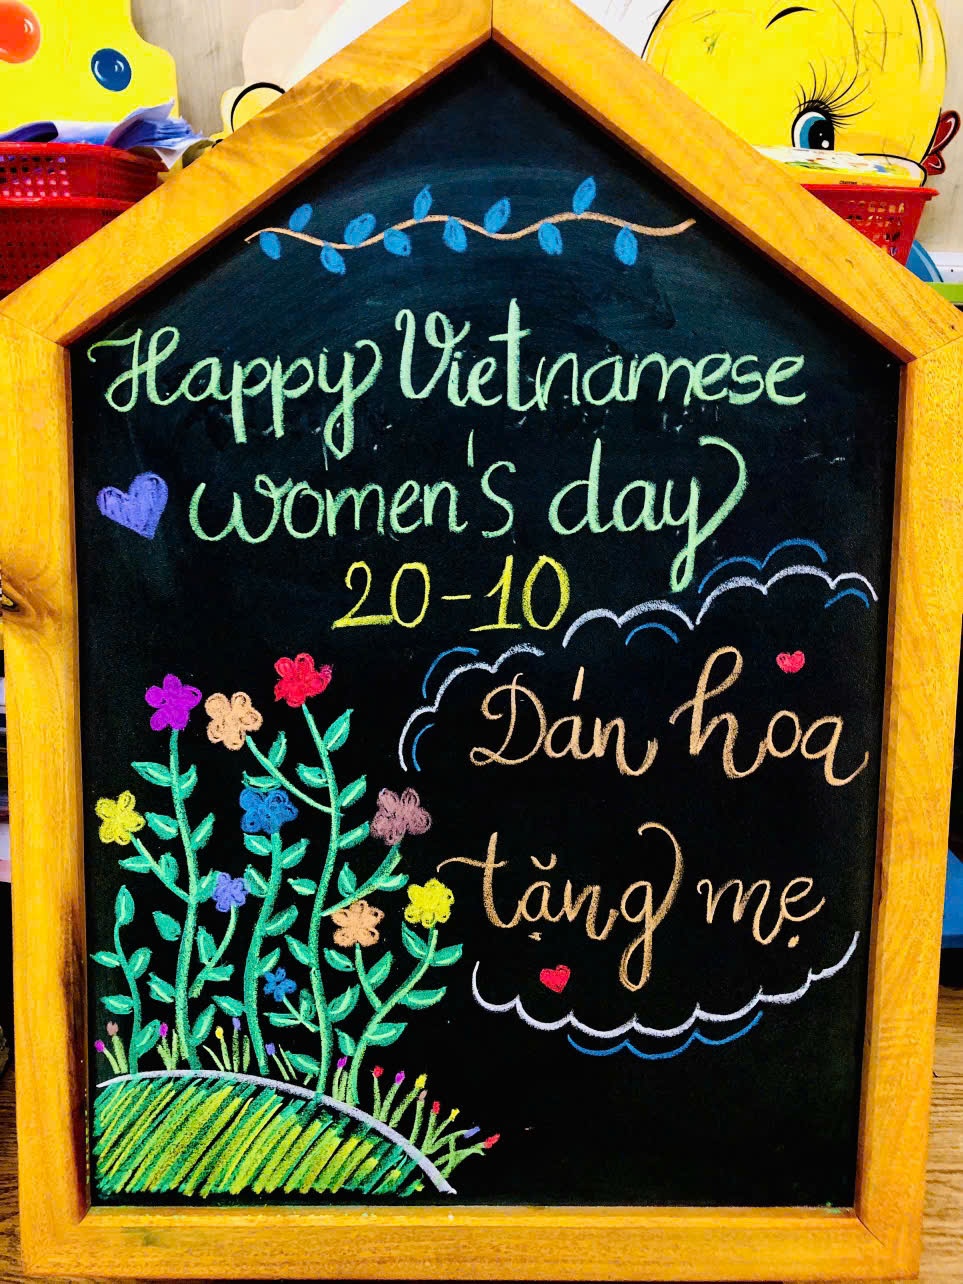 Happy Vietnamese
women's day
20-10
Dán hoa
tặng mẹ